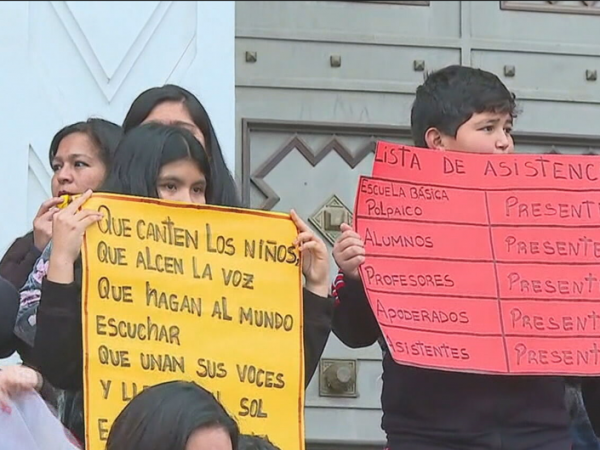 QUE CANTEN LOS NIÑOS,
QUE ALCEN LA VOZ
QUE HAGAN AL MUNDO
ESCUCHAR
QUE UNAN SUS VOCES
Y SOL
LISTA DE ASISTENC
ESCUELA BÁSICA
POLPAICO PRESENT
ALUMNOS PRESENTE
PROFESORES PRESENTE
APODERADOS PRESENTE
ASISTENTES PRESENTE